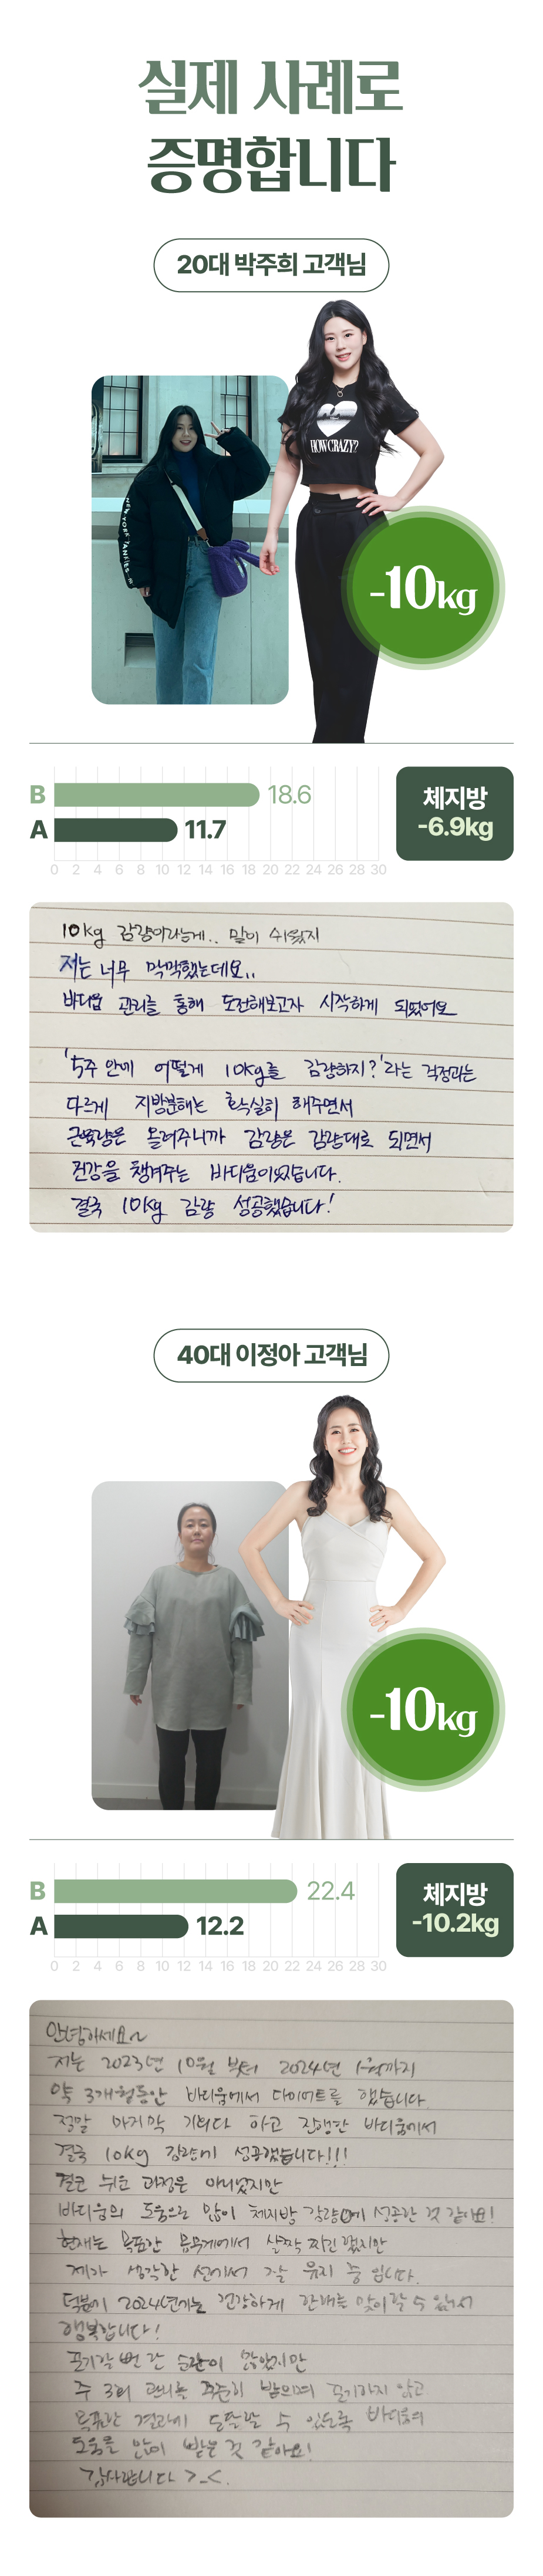 실제 사례로
증명합니다
20대 박주희 고객님
NEW YORK YANKEES
HOW CRAZY?
-10kg
B 18.6
A 11.7
0 2 4 6 8 10 12 14 16 18 20 22 24 26 28 30
체지방
-6.9kg
10kg 감량이라는게.. 말이 쉬웠지
저는 너무 막막했는데요..
바디움 관리를 통해 도전해보고자 시작하게 되었어요
'5주 안에 어떻게 10kg를 감량하지?'라는 걱정과는
다르게 지방분해는 확실히 해주면서
근육량은 늘려주니까 감량은 감량대로 되면서
건강을 챙겨주는 바디움이었습니다.
결국 10kg 감량 성공했습니다!
40대 이정아 고객님
-10kg
B 22.4
A 12.2
0 2 4 6 8 10 12 14 16 18 20 22 24 26 28 30
체지방
-10.2kg
안녕하세요~
저는 2023년 10월 부터 2024년 1월까지
약 3개월동안 바디움에서 다이어트를 했습니다
정말 마지막 기회다 하고 진행한 바디움에서
결국 10kg 감량에 성공했습니다!!!
결코 쉬운 과정은 아니었지만
바디움의 도움으로 많이 체지방 감량에 성공한 것 같아요!
현재는 목표한 몸무게에서 살짝 찌긴 했지만
제가 생각한 선에서 잘 유지 중 입니다.
덕분에 2024년에는 건강하게 한해를 맞이할 수 있어서
행복합니다!
포기할 뻔 한 순간이 많았지만
주 3회 관리를 꾸준히 받으며 포기하지 않고
목표한 결과에 도달할 수 있도록 바디움의
도움을 많이 받은 것 같아요!
감사합니다 >_<.